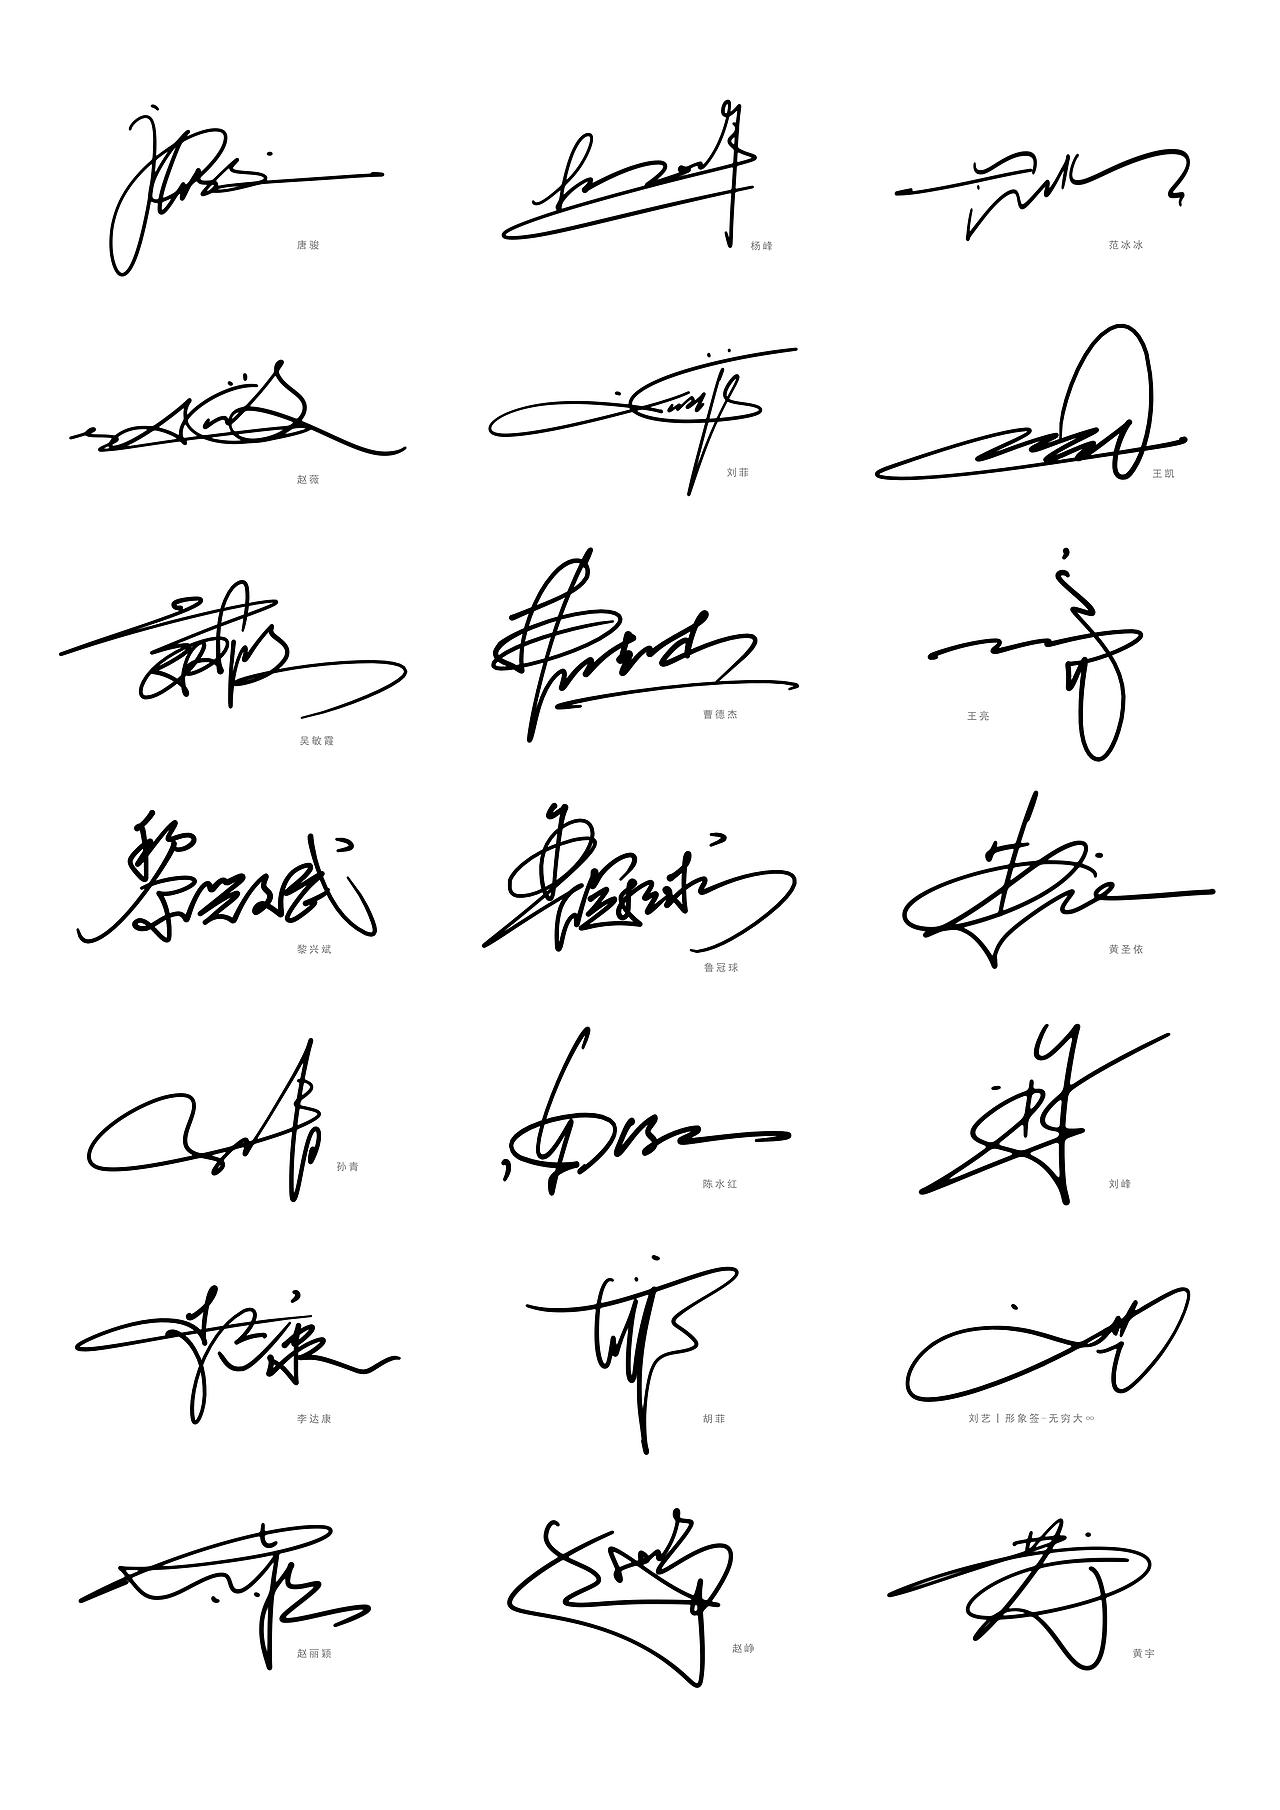 唐骏
杨峰
范冰冰
赵薇
刘菲
王凯
吴敏霞
曹德杰
王亮
黎兴斌
鲁冠球
黄圣依
孙青
陈水红
刘峰
李达康
胡菲
刘艺丨形象签-无穷大∞
赵丽颖
赵峥
黄宇